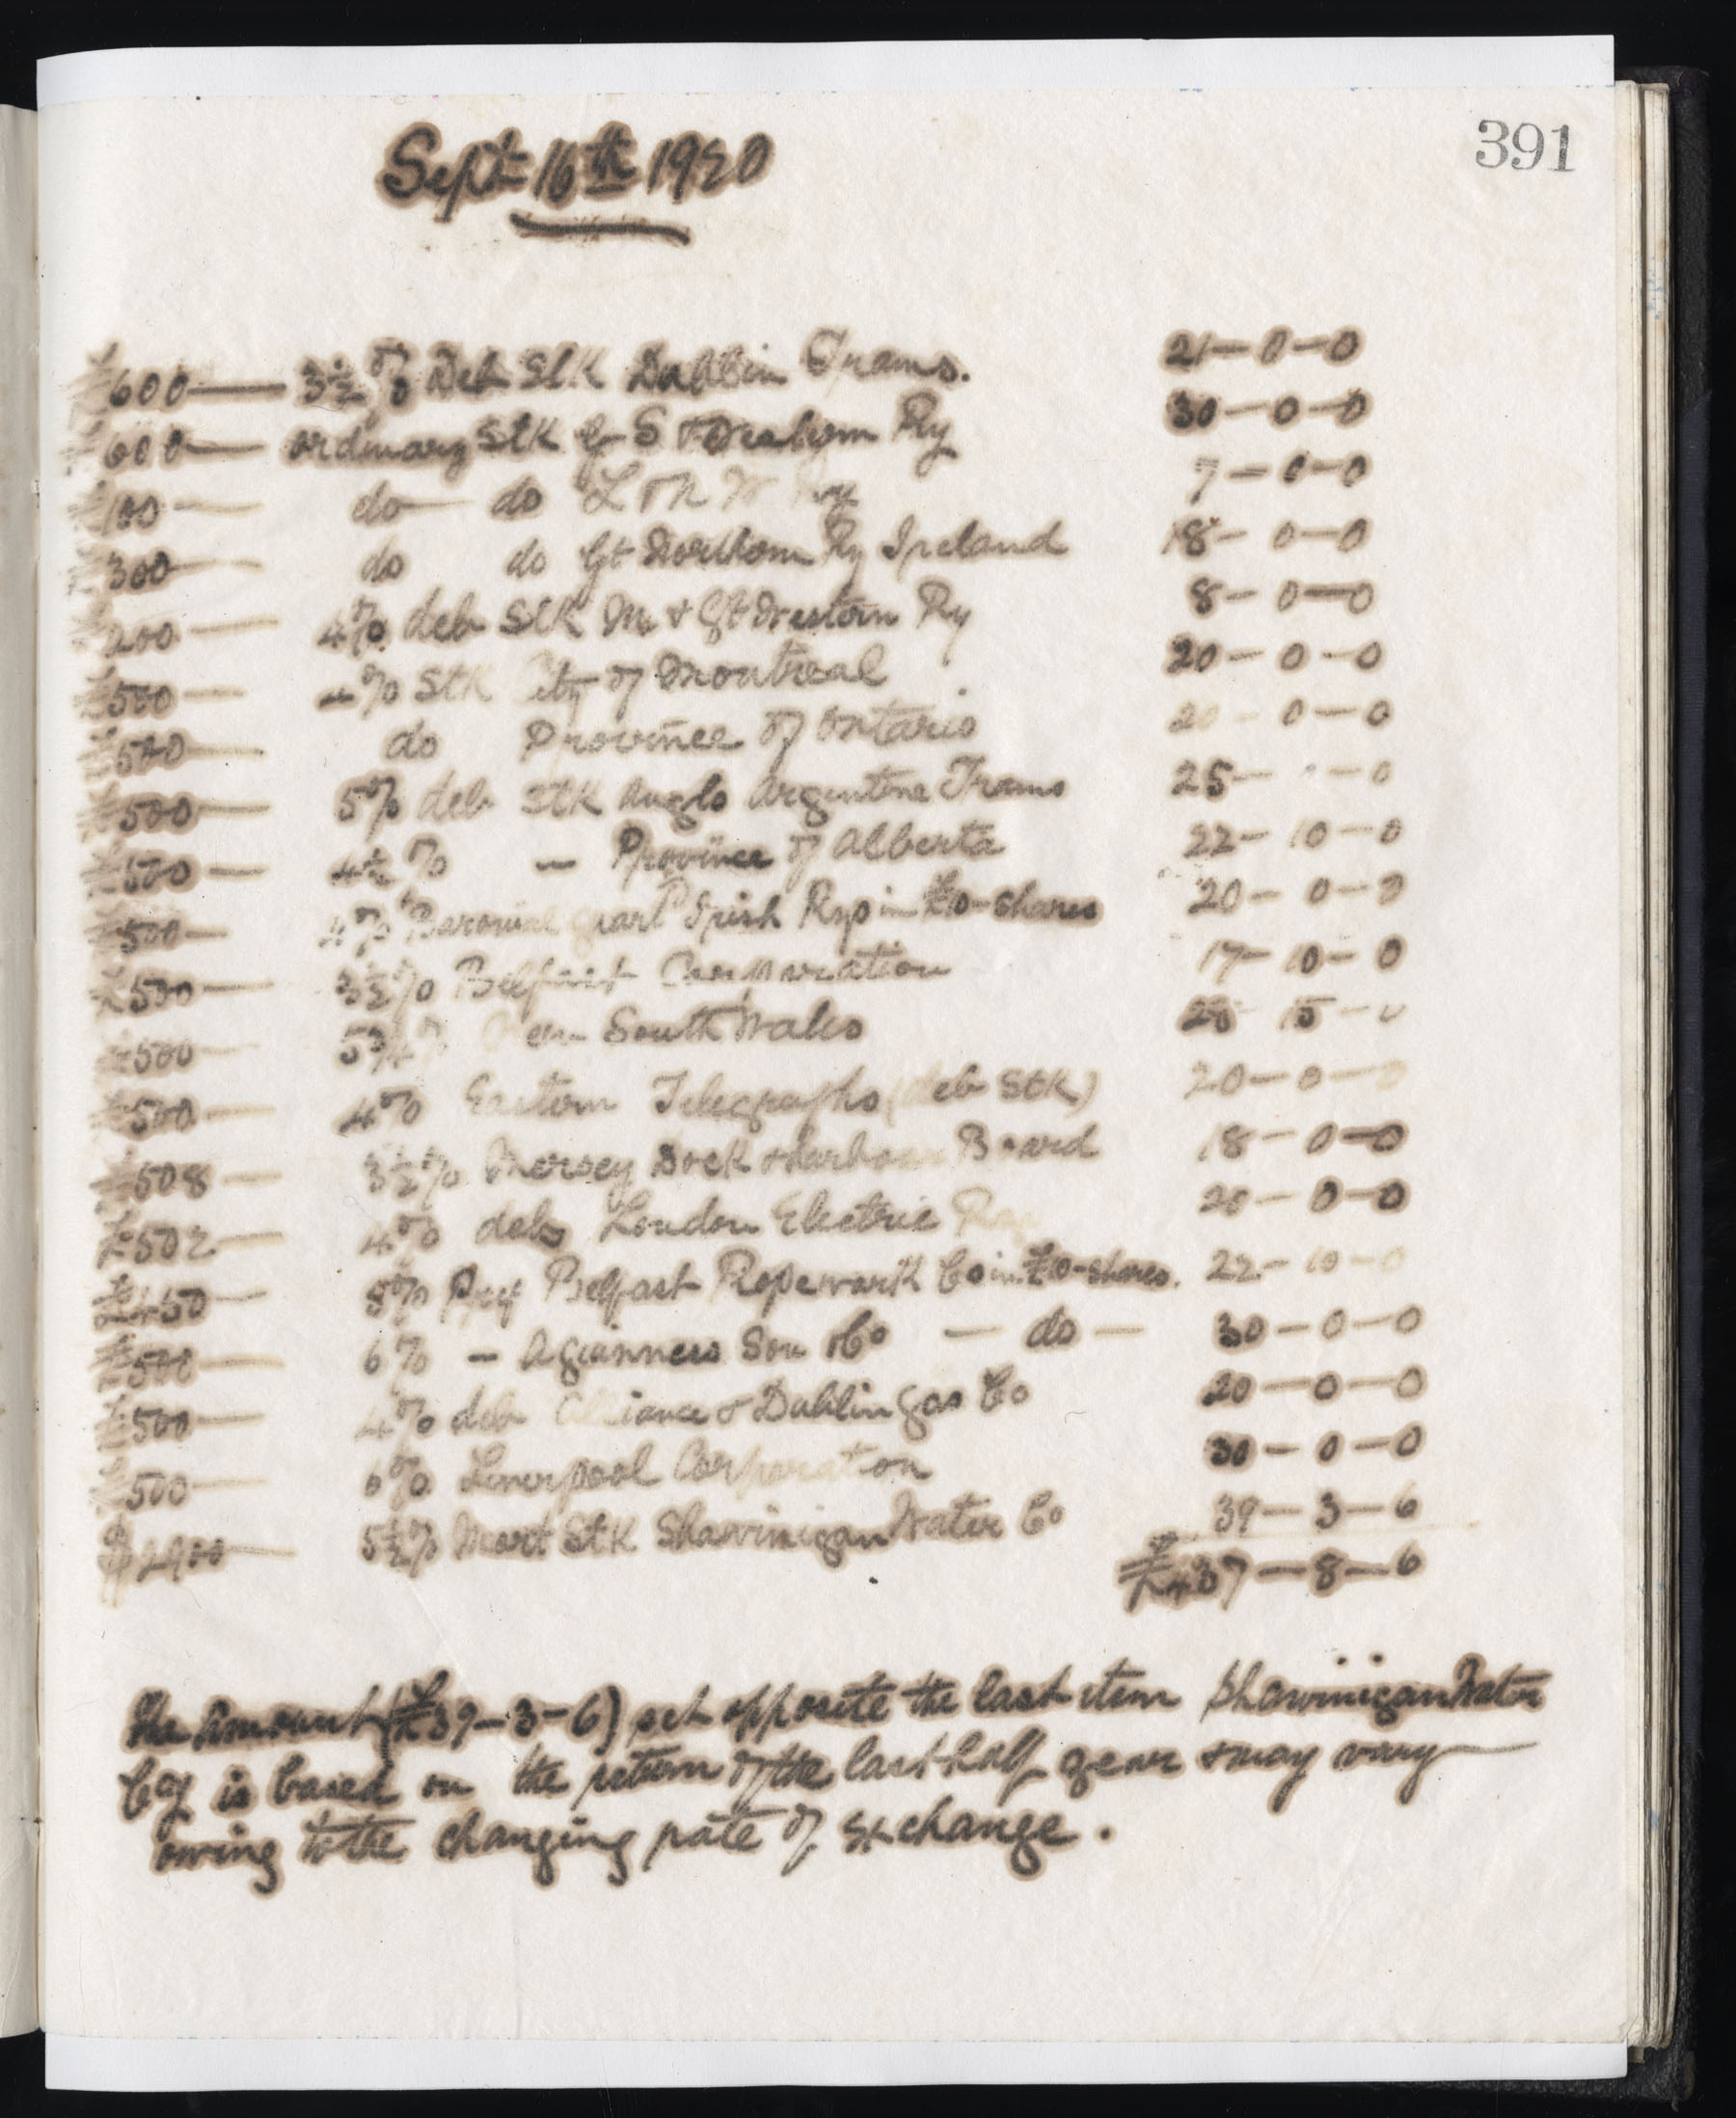 391
Sept 16th 1920
£600 — 3½% Deb Stk Dublin Trams. 21-0-0
£600 — ordinary Stk G S & Western Ry 30-0-0
£100 — do do L & N W Ry 7-0-0
£300 — do do Gt Northern Ry Ireland 18-0-0
£200 — 4% deb Stk M & Gt Western Ry 8-0-0
£500 — 4% Stk City of Montreal 20-0-0
£500 — do Province of Ontario 20-0-0
£500 — 5% deb Stk Anglo Argentine Trams 25- -0
£500 — 4½% — Province of Alberta 22-10-0
£500 — 4% Baronial guart Irish Rys in £10-shares 20-0-0
£500 — 3½% Belfast Corporation 17-10-0
£500 — 5¾% New South Wales 28-15-0
£500 — 4% Eastern Telegraphs (deb Stk) 20-0-0
£508 — 3½% Mersey Dock & Harbour Board 18-0-0
£502 — 4% deb London Electric 20-0-0
£450 — 5% Pref Belfast Ropework Co in £10-shares. 22-10-0
£500 — 6% — A Guinness Son & Co — do — 30-0-0
£500 — 4% deb Alliance & Dublin Gas Co 20-0-0
£500 — 6% Liverpool Corporation 30-0-0
$2900 — 5½% Mort Stk Shawinigan Water Co 39-3-6
£437-8-6
The Amount (£39-3-6) set opposite the last item Shawinigan Water
Coy is based on the return of the last half year & may vary
owing to the changing rate of exchange.